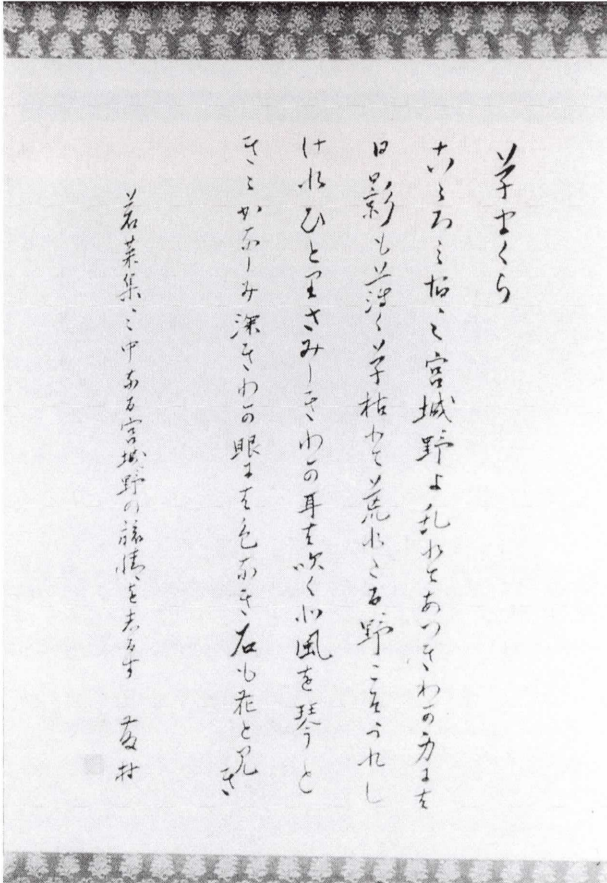 草まくら
こゝろの宿の宮城野よ乱れてあつきわか身には
日影も薄く草枯れて荒れたる野こそうれし
けれひとりさみしきわか耳は吹く北風を琴と
きゝかなしみ深きわか眼には色なき石も花と見き
若菜集の中なる宮城野の旅情をしるす 藤村